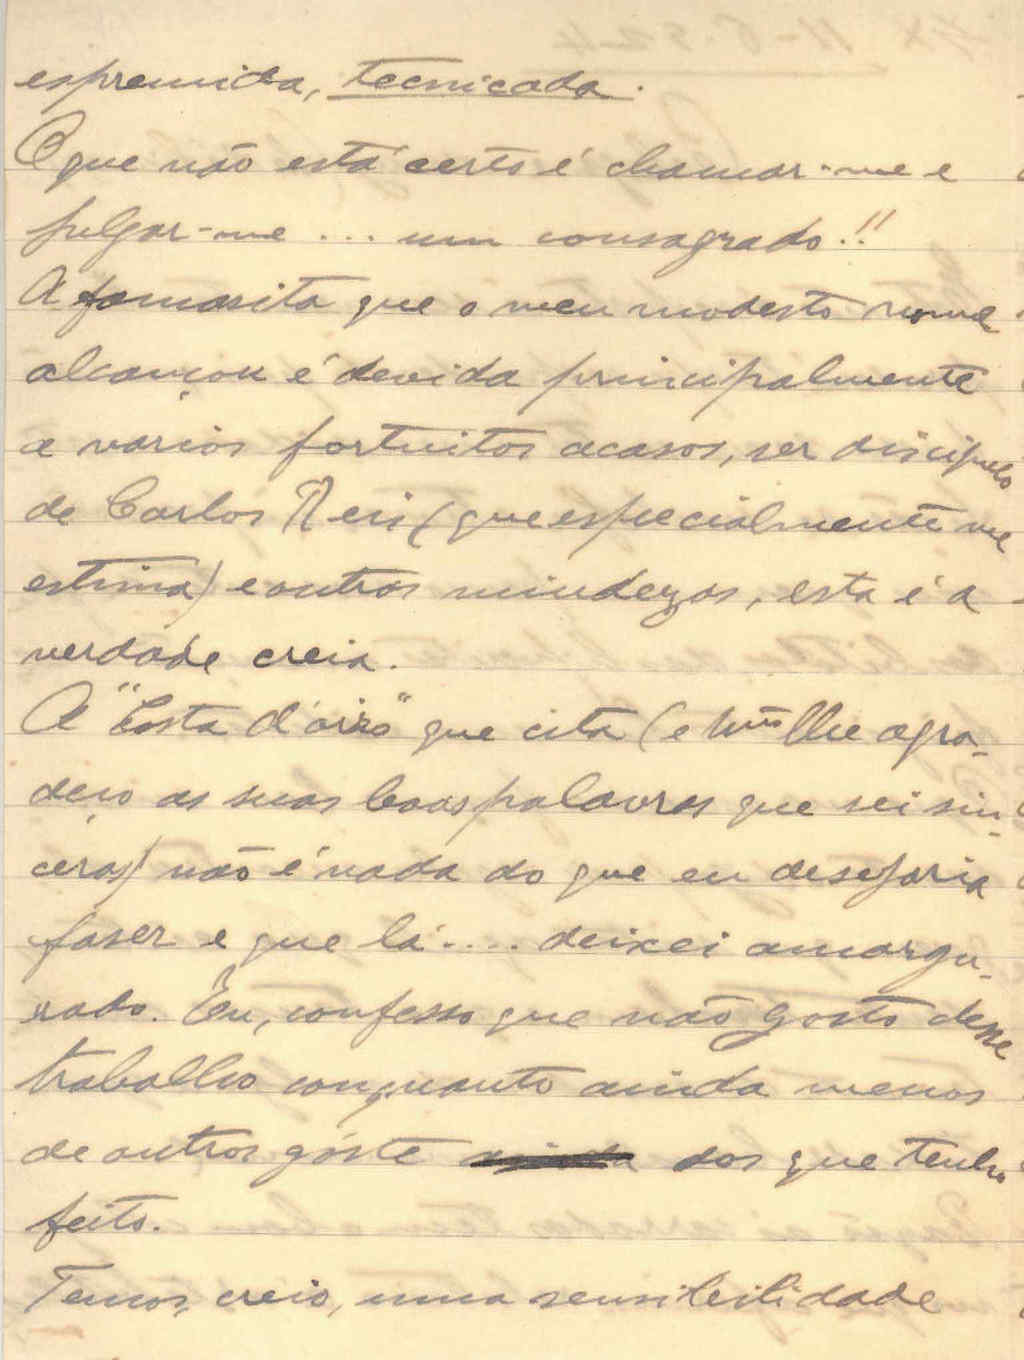 espremida, tecnicada.
O que não está certo é chamar-me e
julgar-me ... um consagrado!!
A famasita que o meu modesto nome
alcançou é devida principalmente
a varios fortuitos acasos, ser discipulo
de Carlos Reis (que especialmente me
estima) e outras mindezas, esta é a
verdade creia.
A "Costa d'oiro" que cita (e mto lhe agra-
deço as suas boas palavras que sei sin-
ceras) não é nada do que eu desejaria
faser e que lá .... deixei amargu-
rado. Eu, confesso que não gosto desse
trabalho conquanto ainda menos
de outros góste dos que tenho
feito.
Temos, creio, uma sensibilidade